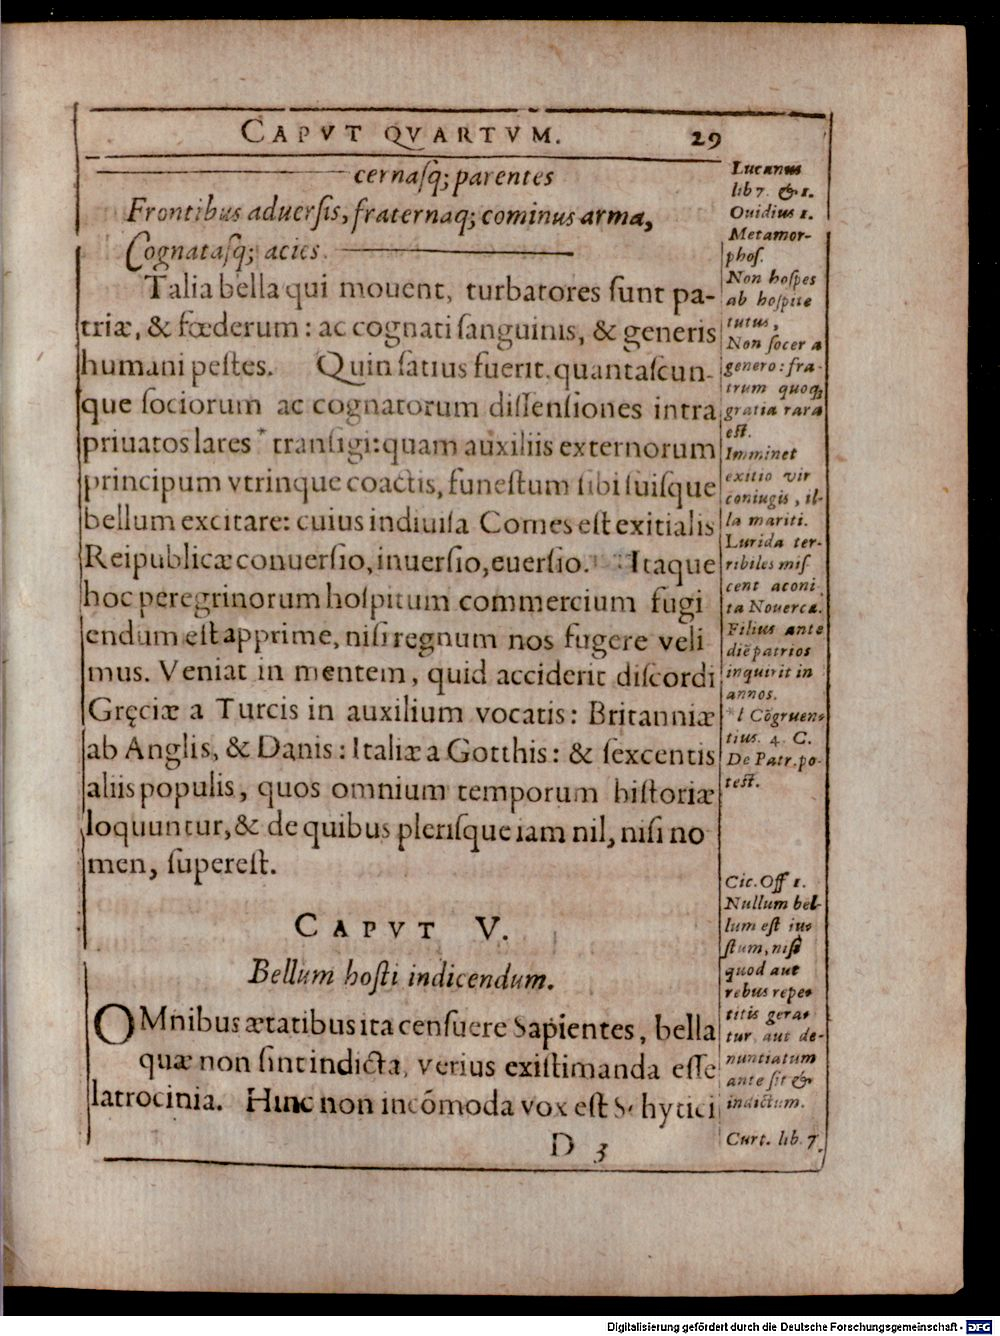 CAPVT QVARTVM. 29
cernaſq; parentes
Frontibus aduerſis, fraternaq; cominus arma,
Cognataſq; acies.
Talia bella qui mouent, turbatores ſunt pa-
triæ, & fœderum: ac cognati ſanguinis, & generis
humani peſtes. Quin ſatius fuerit, quantaſcun-
que ſociorum ac cognatorum diſſenſiones intra
priuatos lares * tranſigi: quam auxiliis externorum
principum vtrinque coactis, funeſtum ſibi ſuiſque
bellum excitare: cuius indiuiſa Comes eſt exitialis
Reipublicæ conuerſio, inuerſio, euerſio. Itaque
hoc peregrinorum hoſpitum commercium fugi
endum eſt apprime, niſi regnum nos fugere veli
mus. Veniat in mentem, quid acciderit diſcordi
Gręciæ a Turcis in auxilium vocatis: Britanniæ
ab Anglis, & Danis: Italiæ a Gotthis: & ſexcentis
aliis populis, quos omnium temporum hiſtoriæ
loquuntur, & de quibus pleriſque iam nil, niſi no
men, ſupereſt.
Lucanus
lib 7. & 1.
Ouidius 1.
Metamor-
phoſ.
Non hoſpes
ab hoſpite
tutus,
Non ſocer a
genero: fra-
trum quoq;
gratia rara
eſt.
Imminet
exitio vir
coniugis, il-
la mariti.
Lurida ter-
ribiles miſ
cent aconi
ta Nouercæ.
Filius ante
diē patrios
inquirit in
annos.
* l Cōgruen-
tius. 4. C.
De Patr. po-
teſt.
CAPVT V.
Bellum hoſti indicendum.
OMnibus ætatibus ita cenſuere Sapientes, bella
quæ non ſint indicta, verius exiſtimanda eſſe
latrocinia. Hinc non incōmoda vox eſt Schytici
D 3
Cic. Off 1.
Nullum bel-
lum eſt iu-
ſtum, niſi
quod aut
rebus repe-
titis gera-
tur, aut de-
nuntiatum
ante ſit &
indictum.
Curt. lib. 7.
Digitalisierung gefördert durch die Deutsche Forschungsgemeinschaft - DFG